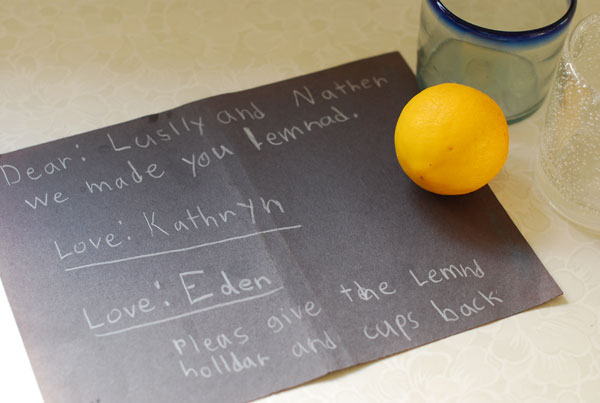 Dear: Luslly and Nathen
we made you lemnad.
Love: Kathryn
Love: Eden
pleas give the Lemnd
holldar and cups back